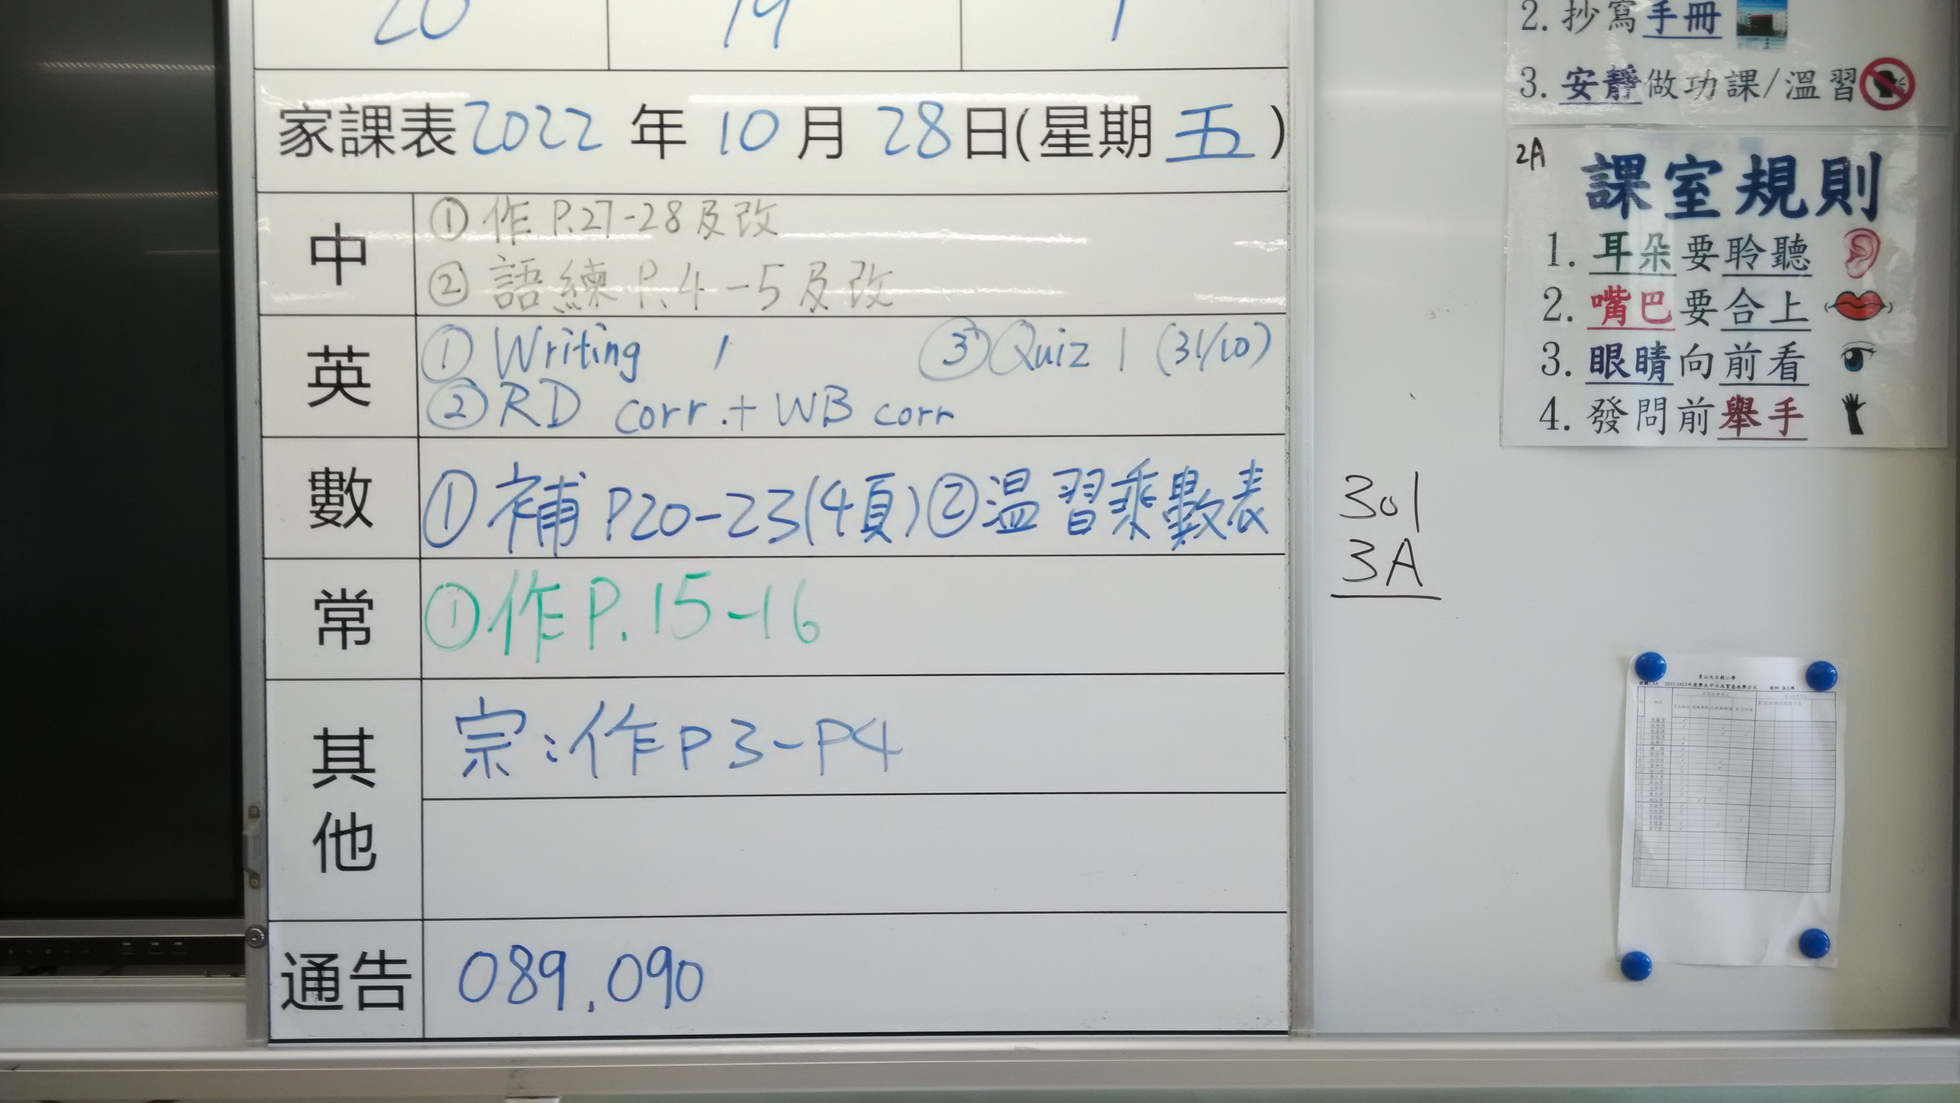 20 19 1
家課表2022年10月28日(星期五)
中
①作P.27-28及改
②語練P.4-5及改
英
①Writing 1 ③Quiz 1 (31/10)
②RD corr.+WB corr
數
①補P20-23(4頁)②温習乘數表
常
①作P.15-16
其他
宗:作P3-P4
通告
089,090
2.抄寫手冊
3.安靜做功課/溫習
2A
課室規則
1.耳朵要聆聽
2.嘴巴要合上
3.眼睛向前看
4.發問前舉手
301
3A